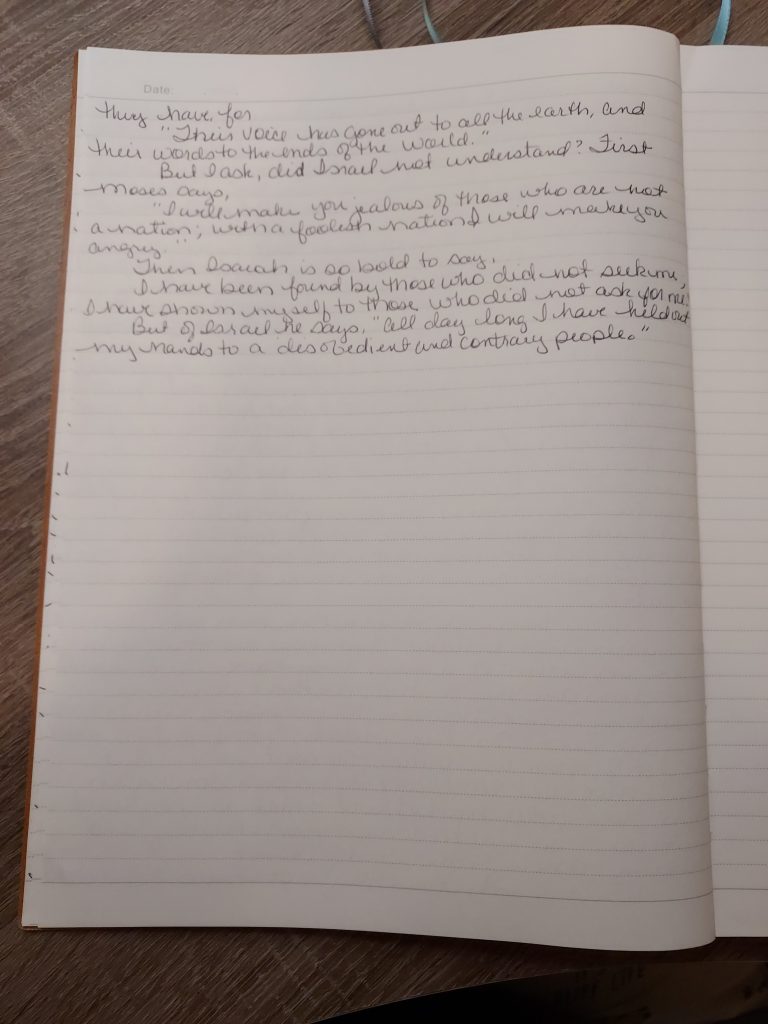 Date:
they have, for
"Their voice has gone out to all the earth, and
their words to the ends of the world."
But I ask, did Israel not understand? First
Moses says,
"I will make you jealous of those who are not
a nation; with a foolish nation I will make you
angry."
Then Isaiah is so bold to say,
I have been found by those who did not seek me,
I have shown myself to those who did not ask for me."
But of Israel he says, "all day long I have held out
my hands to a disobedient and contrary people."